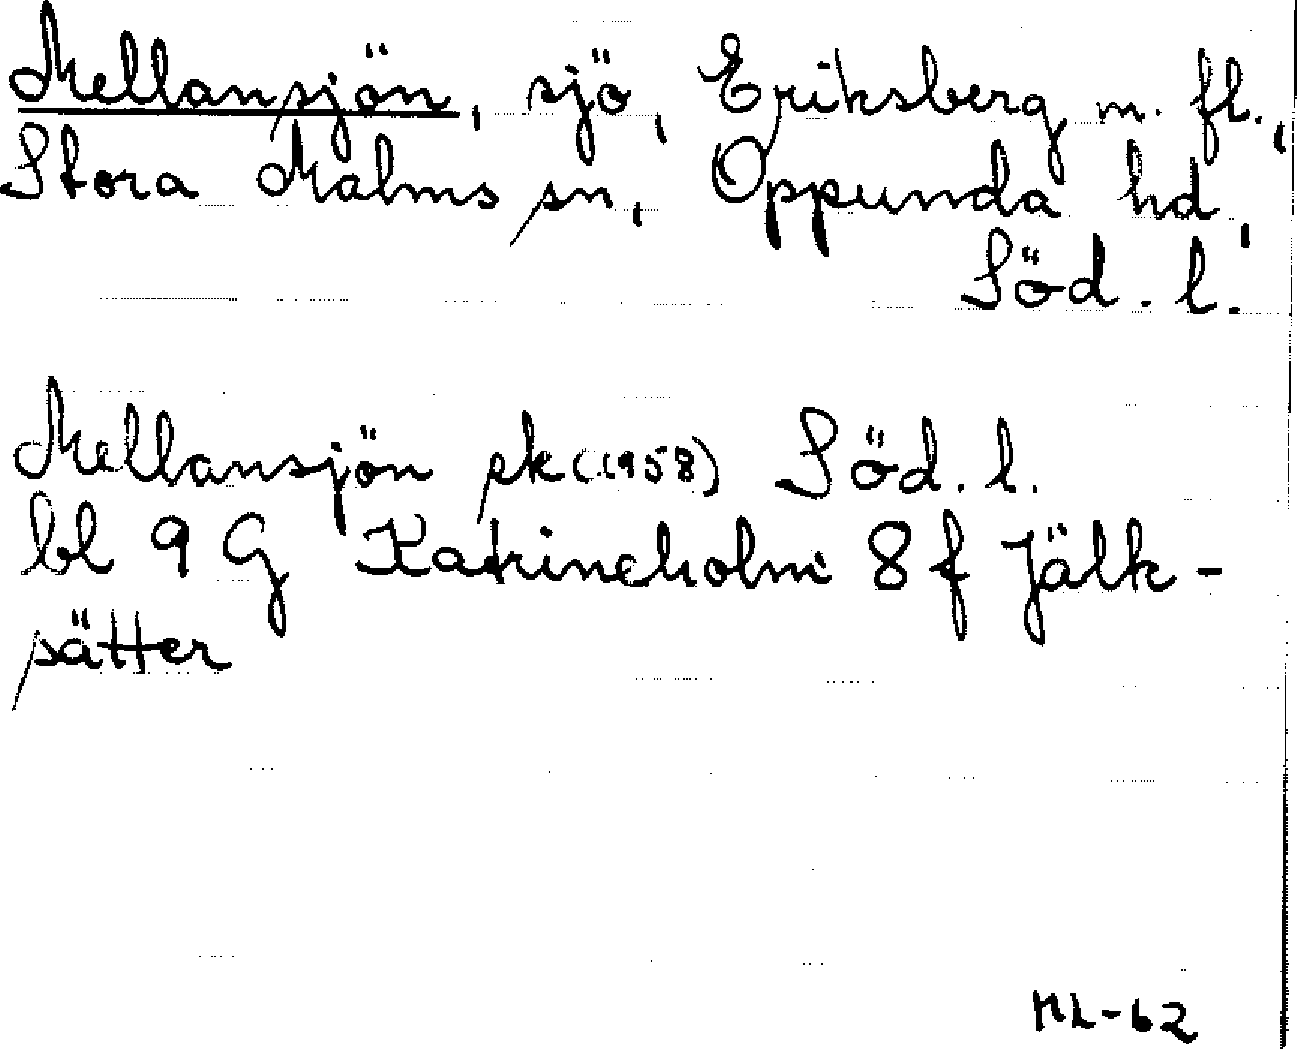 Mellansjön, sjö, Eriksberg m. fl.,
Stora Malms sn, Oppunda hd,
Söd. l.
Mellansjön sk (1958) Söd. l.
bl 9 G Katrineholm 8 f Jälk-
sätter
ML-62